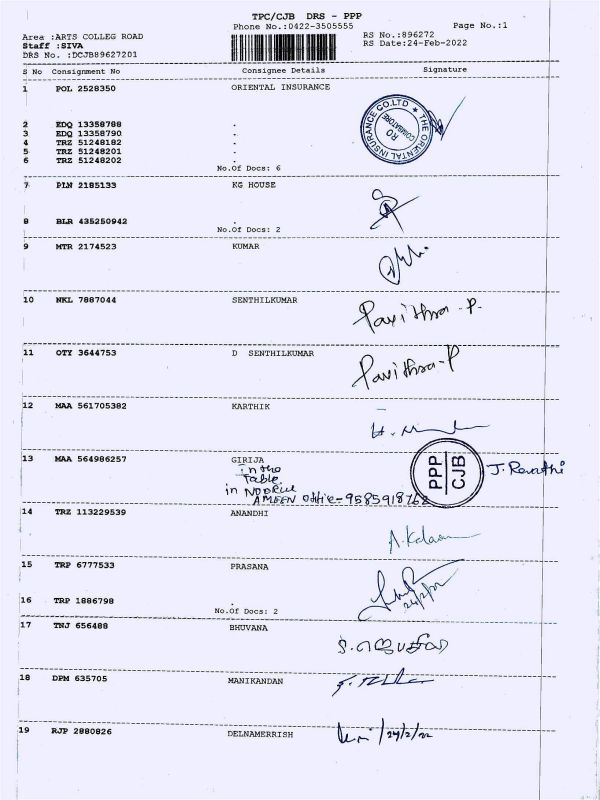 TPC/CJB DRS - PPP
Phone No.:0422-3505555
Page No.:1
Area :ARTS COLLEG ROAD
Staff :SIVA
DRS No. :DCJB89627201
RS No.:896272
RS Date:24-Feb-2022
S No Consignment No Consignee Details Signature
1 POL 2528350 ORIENTAL INSURANCE
THE ORIENTAL INSURANCE CO.LTD
RO
COIMBATORE
2 EDQ 13358788 .
3 EDQ 13358790 .
4 TRZ 51248182 .
5 TRZ 51248201 .
6 TRZ 51248202 .
No.Of Docs: 6
7 PLN 2185133 KG HOUSE
8 BLR 435250942 .
No.Of Docs: 2
9 MTR 2174523 KUMAR
10 NKL 7887044 SENTHILKUMAR Pavithra-P.
11 OTY 3644753 D SENTHILKUMAR Pavithra-P
12 MAA 561705382 KARTHIK
13 MAA 564986257 GIRIJA
PPP
CJB
J. Revathi
in the
Table
in NOORUL
AMEEN Office-9585918762
14 TRZ 113229539 ANANDHI
15 TRP 6777533 PRASANA
24/2/22
16 TRP 1886798 .
No.Of Docs: 2
17 TNJ 656488 BHUVANA
18 DPM 635705 MANIKANDAN
19 RJP 2880826 DELNAMERRISH
/24/2/22